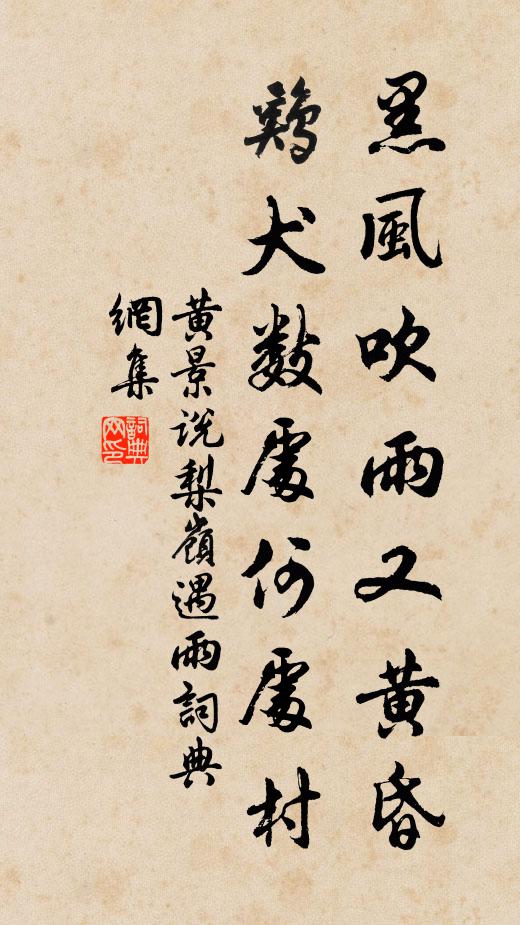 黑風吹雨又黃昏
鷄犬數處何處村
黃景說梨嶺遇雨詞典
網集
詞典網印